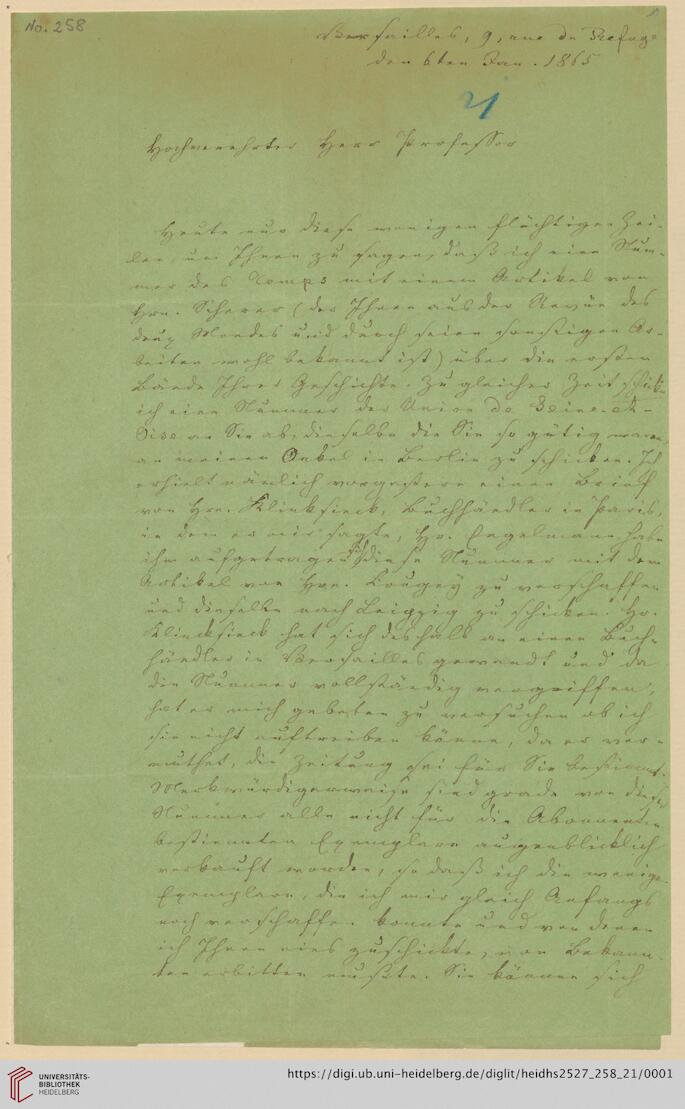 No. 258
Versailles, 9, rue du Refuge
den 6ten Jan. 1865
21
Hochverehrter Herr Professor
Heute nur diese wenigen flüchtigen Zei-
len, um Ihnen zu sagen, daß ich eine Num-
mer des Temps mit einem Artikel von
Hrn. Scherer (der Ihnen aus der Revue des
deux Mondes und durch seine sonstigen Ar-
beiten wohl bekannt ist) über die ersten
Bände Ihrer Geschichte. Zu gleicher Zeit schicke
ich eine Nummer der Union de Seine-et-
Oise an Sie ab, dieselbe die Sie so gütig waren
an meinen Onkel in Berlin zu schicken. Ich
erhielt nämlich vorgestern einen Brief
von Hrn. Klinksieck, Buchhändler in Paris,
in dem er mir sagte, Hr. Engelmann habe
ihm aufgetragen diese Nummer mit dem
Artikel von Hrn. Lougey zu verschaffen
und dieselbe nach Leipzig zu schicken. Hr.
Klincksieck hat sich deshalb an einen Buch-
händler in Versailles gewandt und da
die Nummer vollständig vergriffen,
hat er mich gebeten zu versuchen ob ich
sie nicht auftreiben könne, da er ver-
muthet, die Zeitung sei für Sie bestimmt.
Merkwürdigerweise sind grade von dieser
Nummer alle nicht für die Abonnenten
bestimmten Exemplare augenblicklich
verkauft worden, so daß ich die wenigen
Exemplare, die ich mir gleich Anfangs
noch verschaffen konnte und von denen
ich Ihnen eines zuschickte, von Bekann-
ten erbitten mußte. Sie können sich
UNIVERSITÄTS-
BIBLIOTHEK
HEIDELBERG
https://digi.ub.uni-heidelberg.de/diglit/heidhs2527_258_21/0001